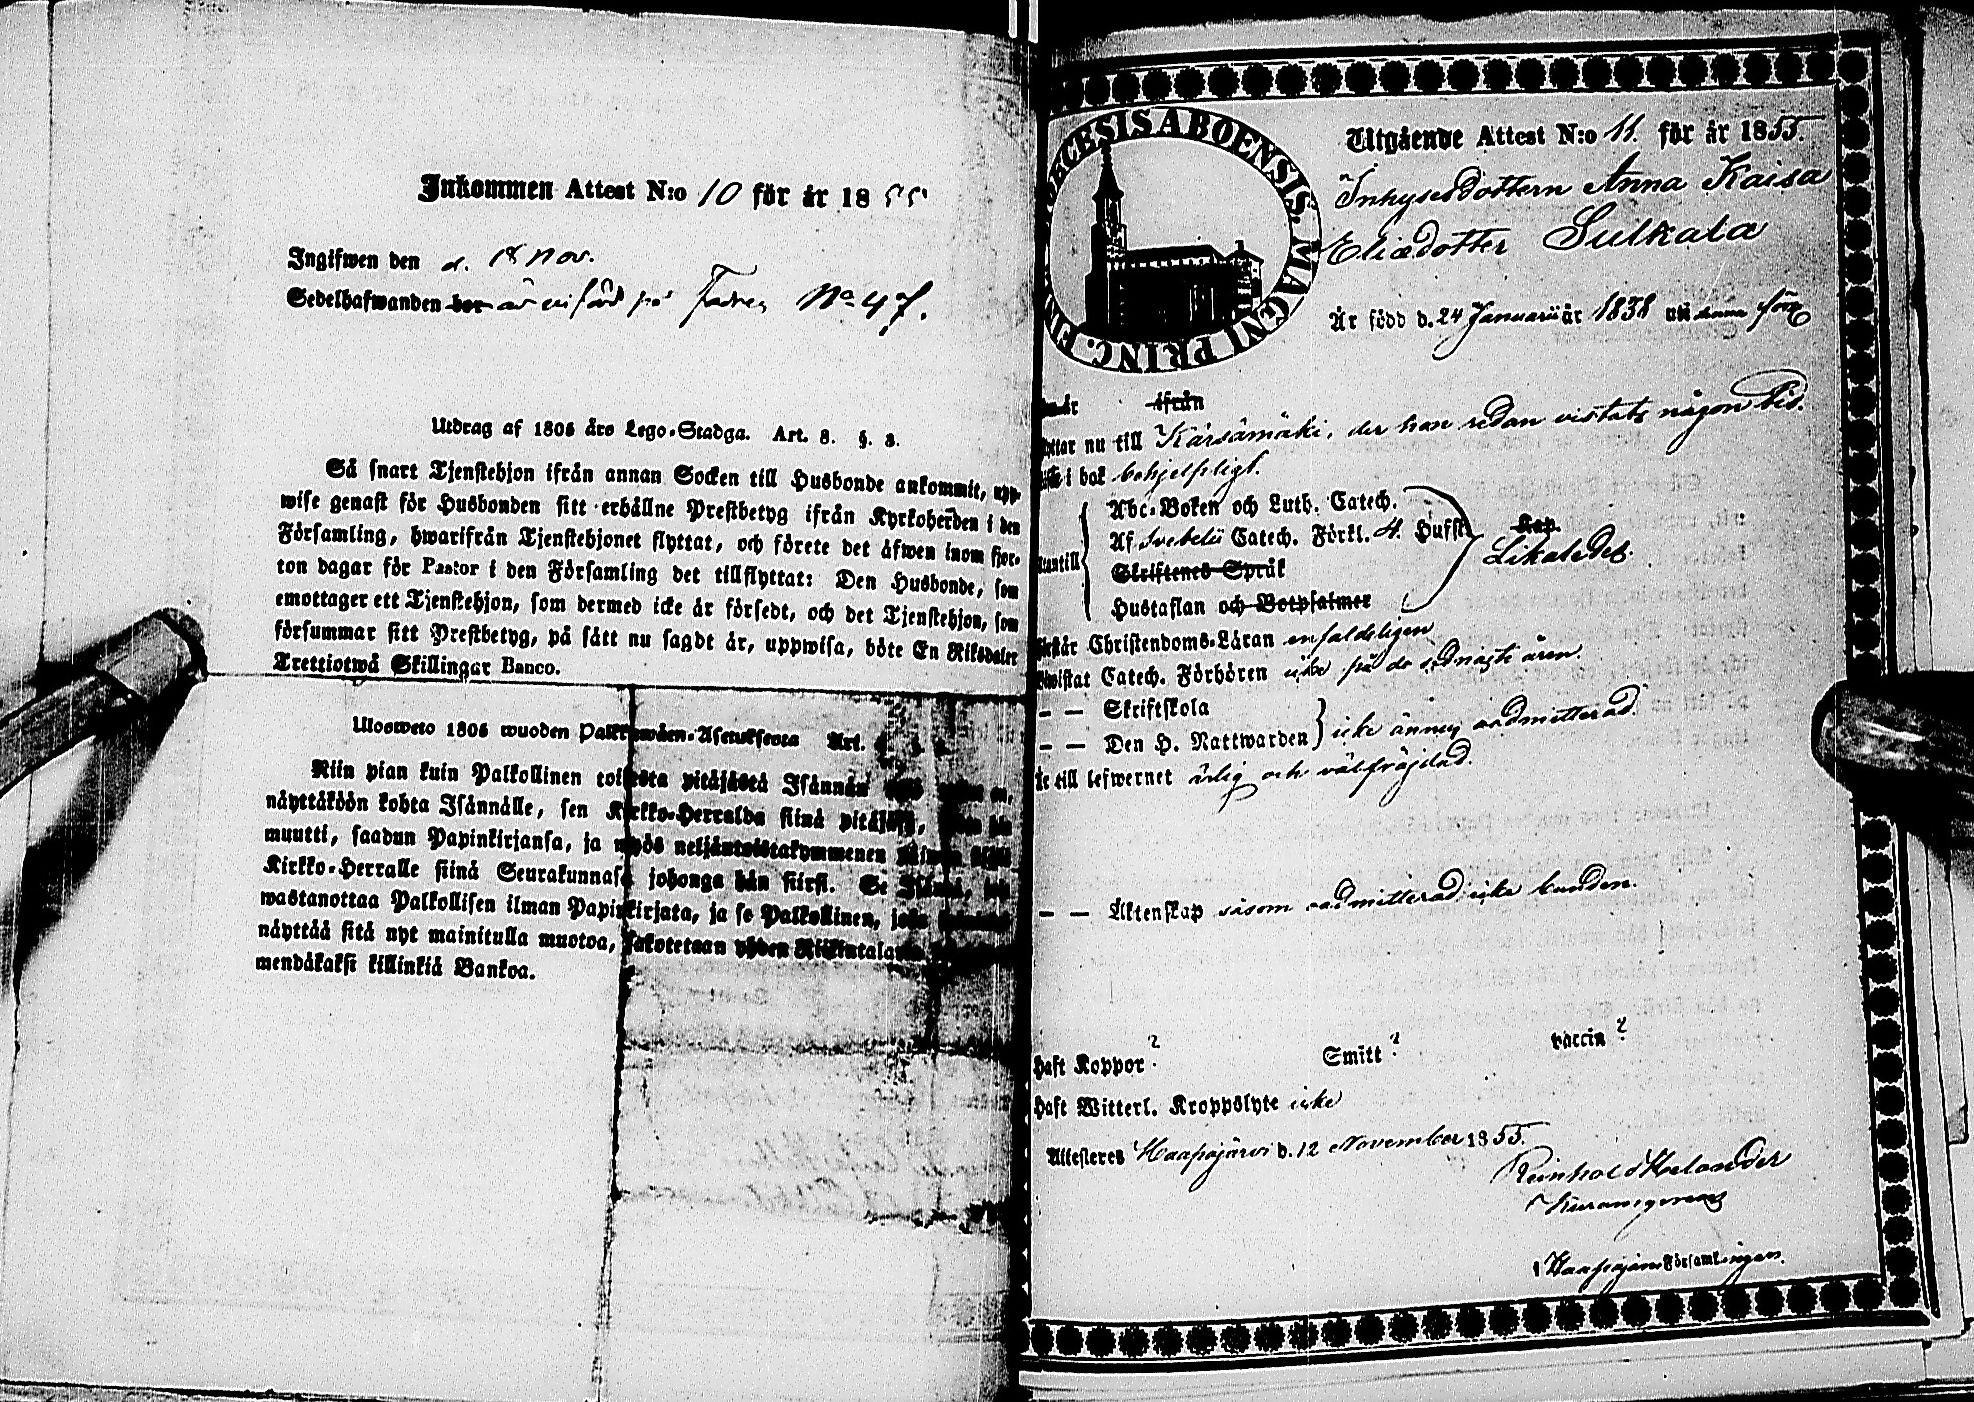 Inkommen Attest N:o 10 för år 1855
Ingifwen den d. 18 Nov.
Sedelhafwanden bor är införd på No 47.
Utdrag af 1805 års Lego-Stadga. Art. 8. §. 3.
Så snart Tjenstehjon ifrån annan Socken till Husbonde ankommit, upp-
wise genast för Husbonden sitt erhållne Prestbetyg ifrån Kyrkoherden i den
Församling, hwarifrån Tjenstehjonet flyttat, och förete det äfwen inom fjor-
ton dagar för Pastor i den Församling det tillflyttat: Den Husbonde, som
emottager ett Tjenstehjon, som dermed icke är försedt, och det Tjenstehjon, som
försummar sitt Prestbetyg, på sätt nu sagdt är, uppwisa, böte En Riksdaler
Trettiotwå Skillingar Banco.
Ulosweto 1805 wuoden Palkkawäen-Asetuksesta Art.
Niin pian kuin Palkollinen toisesta pitäjästä Isännän
näyttäköön kohta Isännälle, sen Kirkko-Herralda siinä pitäjäsä,
muutti, saadun Papinkirjansa, ja myös neljäntoistakymmenen
Kirkko-Herralle siinä Seurakunnasa johonga hän siirsi. Se Isändä,
wastanottaa Palkollisen ilman Papinkirjata, ja se Palkollinen, joka
näyttää sitä nyt mainitulla muotoa, sakotetaan yhden Riikintalarin
mendäkaksi killinkiä Bankoa.
DIOECESIS ABOENSIS. MAGNI PRINC. FIN
Utgående Attest N:o 11. för år 1855
Inhysesdottern Anna Kaisa
Eliædotter Sulkala
Är född d. 24 Januarii år 1838 uti
ifrån
flyttar nu till Kärsämäki, der hon redan vistats någon tid.
i bok behjelpligt.
Abc-Boken och Luth. Catech.
Af Svebelii Catech. Förkl. 4. Hufst. Kap.
utantill Likaledes.
Skriftenes Språk
Hustaflan och Botpsalmer
Förstår Christendoms-Läran enfaldeligen
Bewistat Catech. Förhören icke på de sednaste åren.
– – Skriftskola
– – Den H. Nattwarden icke ännu admitterad.
Är till lefwernet ärlig och välfräjdad.
– – Äktenskap såsom oadmitterad icke bunden.
Haft Koppor ? Smitt ? vaccin ?
Haft Witterl. Kroppslyte icke
Attesteres Haapajärvi d. 12 November 1855.
Reinhold
i Haapajärvi Församlingen.